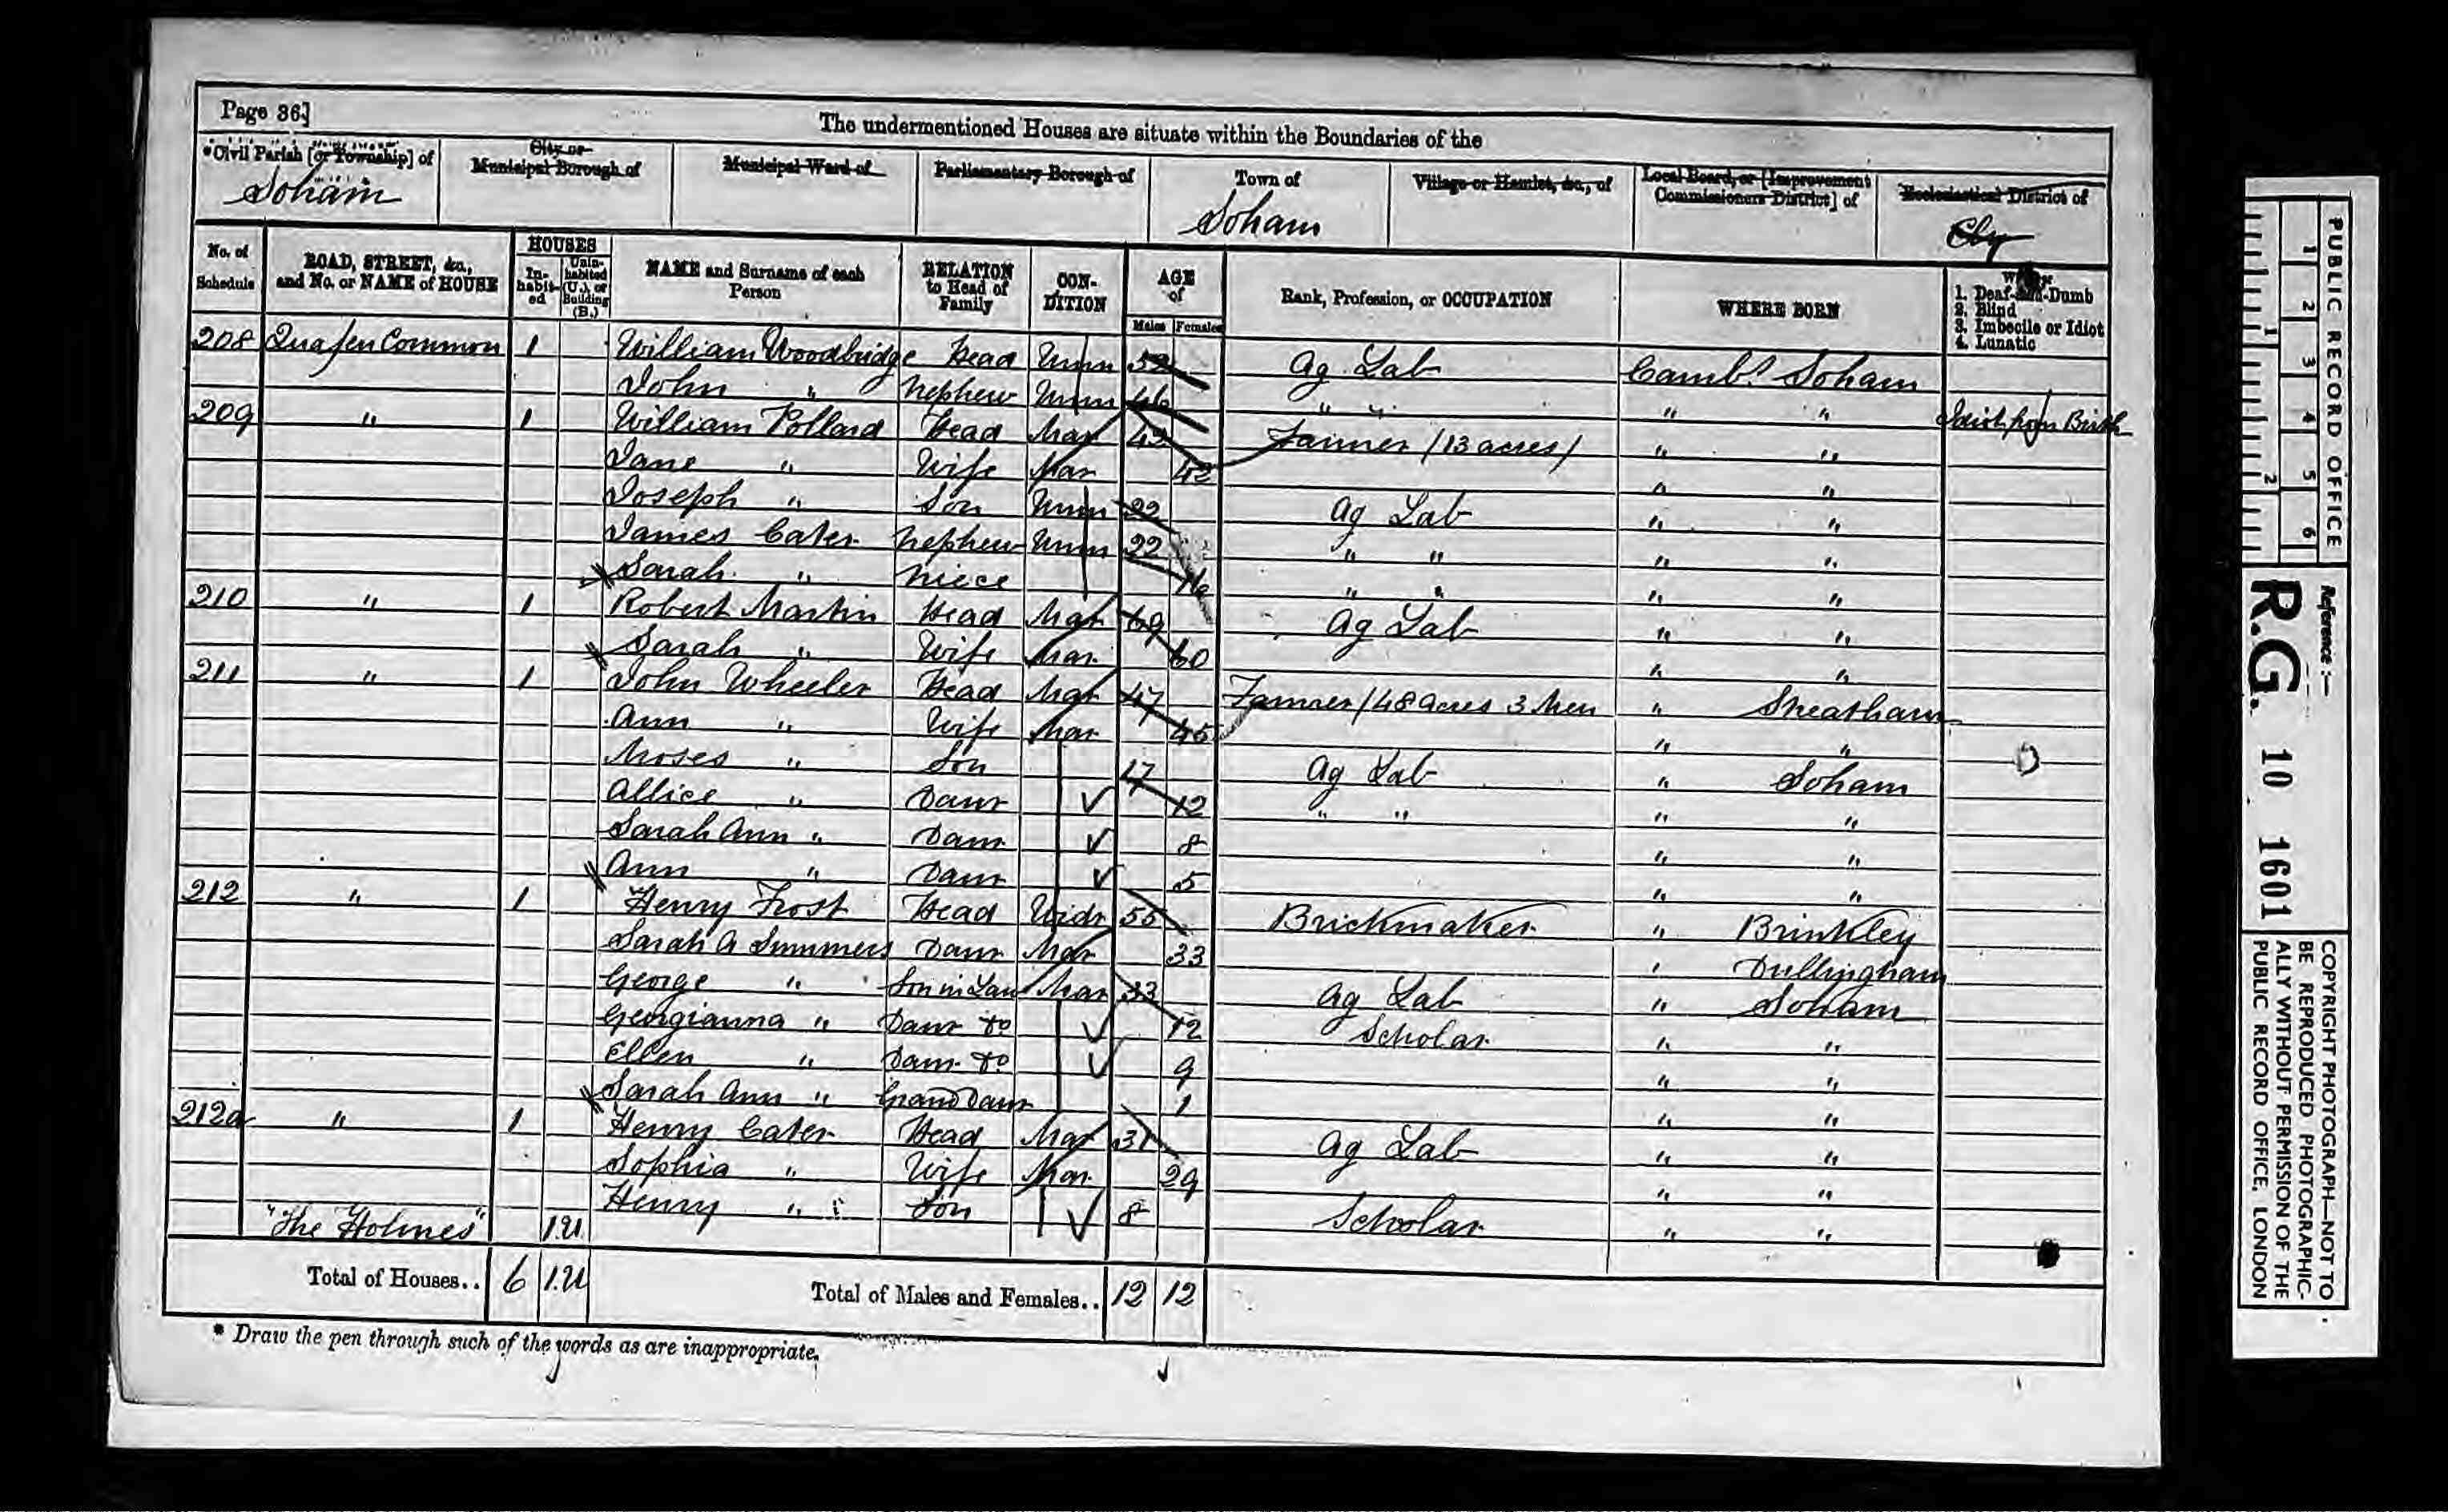 Page 36]
The undermentioned Houses are situate within the Boundaries of the
*Civil Parish [or Township] of Soham
City or Municipal Borough of
Municipal Ward of
Parliamentary Borough of
Town of Soham
Village or Hamlet, &c., of
Local Board, or [Improvement Commissioners District] of
Ecclesiastical District of Ely
No. of Schedule | ROAD, STREET, &c., and No. or NAME of HOUSE | HOUSES In-habit-ed | Unin-habited (U.), or Building (B.) | NAME and Surname of each Person | RELATION to Head of Family | CON-DITION | AGE of Males | Females | Rank, Profession, or OCCUPATION | WHERE BORN | 1. Deaf-and-Dumb 2. Blind 3. Imbecile or Idiot 4. Lunatic
208 Quafen Common 1 William Woodbridge Head Unm Ag Lab Camb. Soham
John " Nephew Unm 46 " " " " Idiot from Birth
209 " 1 William Pollard Head Mar 42 Farmer (13 acres) " "
Jane " Wife Mar 42 " "
Joseph " Son Unm 22 Ag Lab " "
James Cater Nephew Unm 22 " " " "
Sarah " Niece 16 " " " "
210 " 1 Robert Martin Head Mar 69 Ag Lab " "
Sarah " Wife Mar 60 " "
211 " 1 John Wheeler Head Mar 47 Farmer (48 acres 3 Men " Streatham
Ann " Wife Mar 45 " "
Moses " Son 17 Ag Lab " Soham
Allice " Daur 12 " " " "
Sarah Ann " Daur 8 " "
Ann " Daur 5 " "
212 " 1 Henry Frost Head Widr 55 Brickmaker " Brinkley
Sarah A Summers Daur Mar 33 " Dullingham
George " Son in Law Mar 33 Ag Lab " Soham
Georgianna " Daur to 12 Scholar " "
Ellen " Daur to 9 " "
Sarah Ann " Grand Daur 1 " "
212a " 1 Henry Cater Head Mar 31 Ag Lab " "
Sophia " Wife Mar 29 " "
Henry " Son 8 Scholar " "
"The Holmes" 1U
Total of Houses.. 6 1.U Total of Males and Females.. 12 12
* Draw the pen through such of the words as are inappropriate.
PUBLIC RECORD OFFICE
1 2 3 4 5 6
1 2
Reference :-
R.G. 10 1601
COPYRIGHT PHOTOGRAPH—NOT TO
BE REPRODUCED PHOTOGRAPHIC-
ALLY WITHOUT PERMISSION OF THE
PUBLIC RECORD OFFICE, LONDON